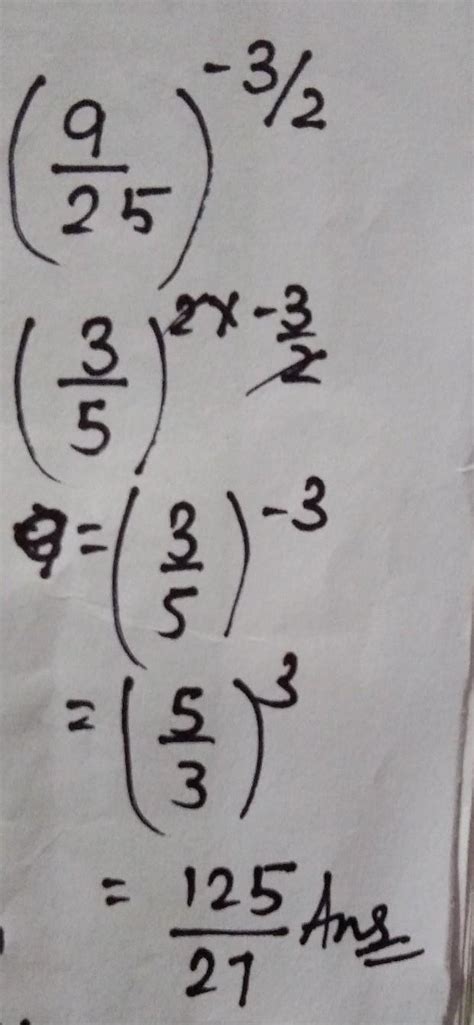 (9/25)^-3/2
(3/5)^2x-3/2
=(3/5)^-3
=(5/3)^3
=125/27 Ans